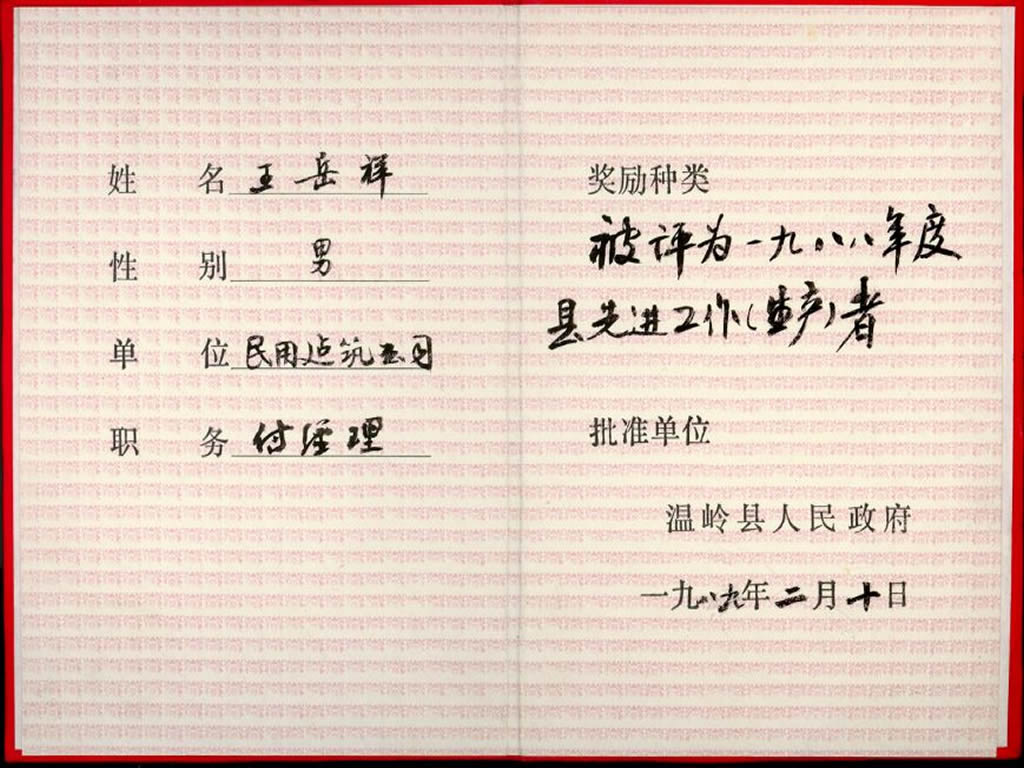 姓 名 王岳祥
性 别 男
单 位 民用建筑公司
职 务 付经理
奖励种类
被评为一九八八年度
县先进工作(生产)者
批准单位
温岭县人民政府
一九八九年二月十日